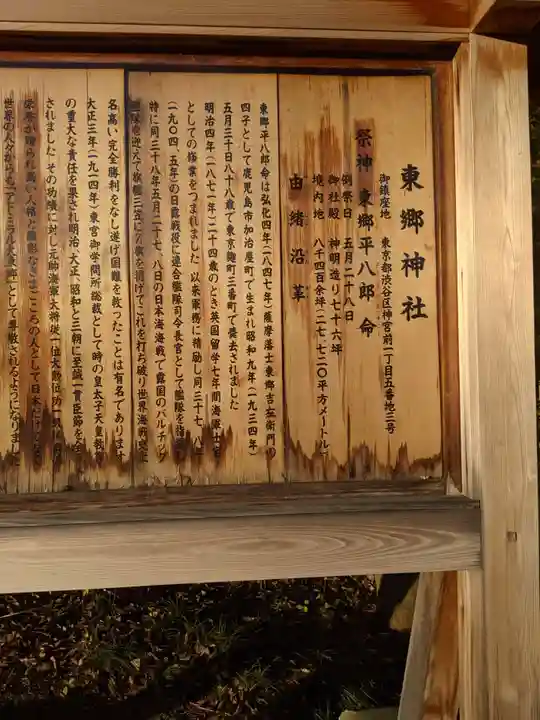 東郷神社
御鎮座地 東京都渋谷区神宮前一丁目五番地三号
祭神 東郷平八郎命
例祭日 五月二十八日
御社殿 神明造り七十六坪
境内地 八千四百余坪(二七、七二〇平方メートル)
由緒沿革
東郷平八郎命は弘化四年(一八四七年)薩摩藩士東郷吉左衛門の
四子として鹿児島市加治屋町で生まれ昭和九年(一九三四年)
五月三十日八十八歳で東京麹町三番町で薨去されました
明治四年(一八七一年)二十四歳のとき英国留学七年間海軍士官
としての修業をつまれました 以来軍務に精励し同三十七、八年
(一九〇四、五年)の日露戦役に連合艦隊司令長官として艦隊を
特に同三十八年五月二十七、八日の日本海海戦で露国のバルチック
艦隊を迎え 旗艦三笠に 掲げてこれを打ち破り世界海戦史に
名高い完全勝利をなし遂げ国難を救ったことは有名であります
大正三年(一九一四年)東宮御学問所総裁として時の皇太子天皇
の重大な責任を果され明治、大正、昭和と三朝に至誠一貫臣節を
されました その功績に対し元帥海軍大将従一位大勲位功一級
栄誉が贈られ高い人格と まごころの人として日本だけでなく
世界の人々からも「アドミラル東郷」として尊敬されるようになりました